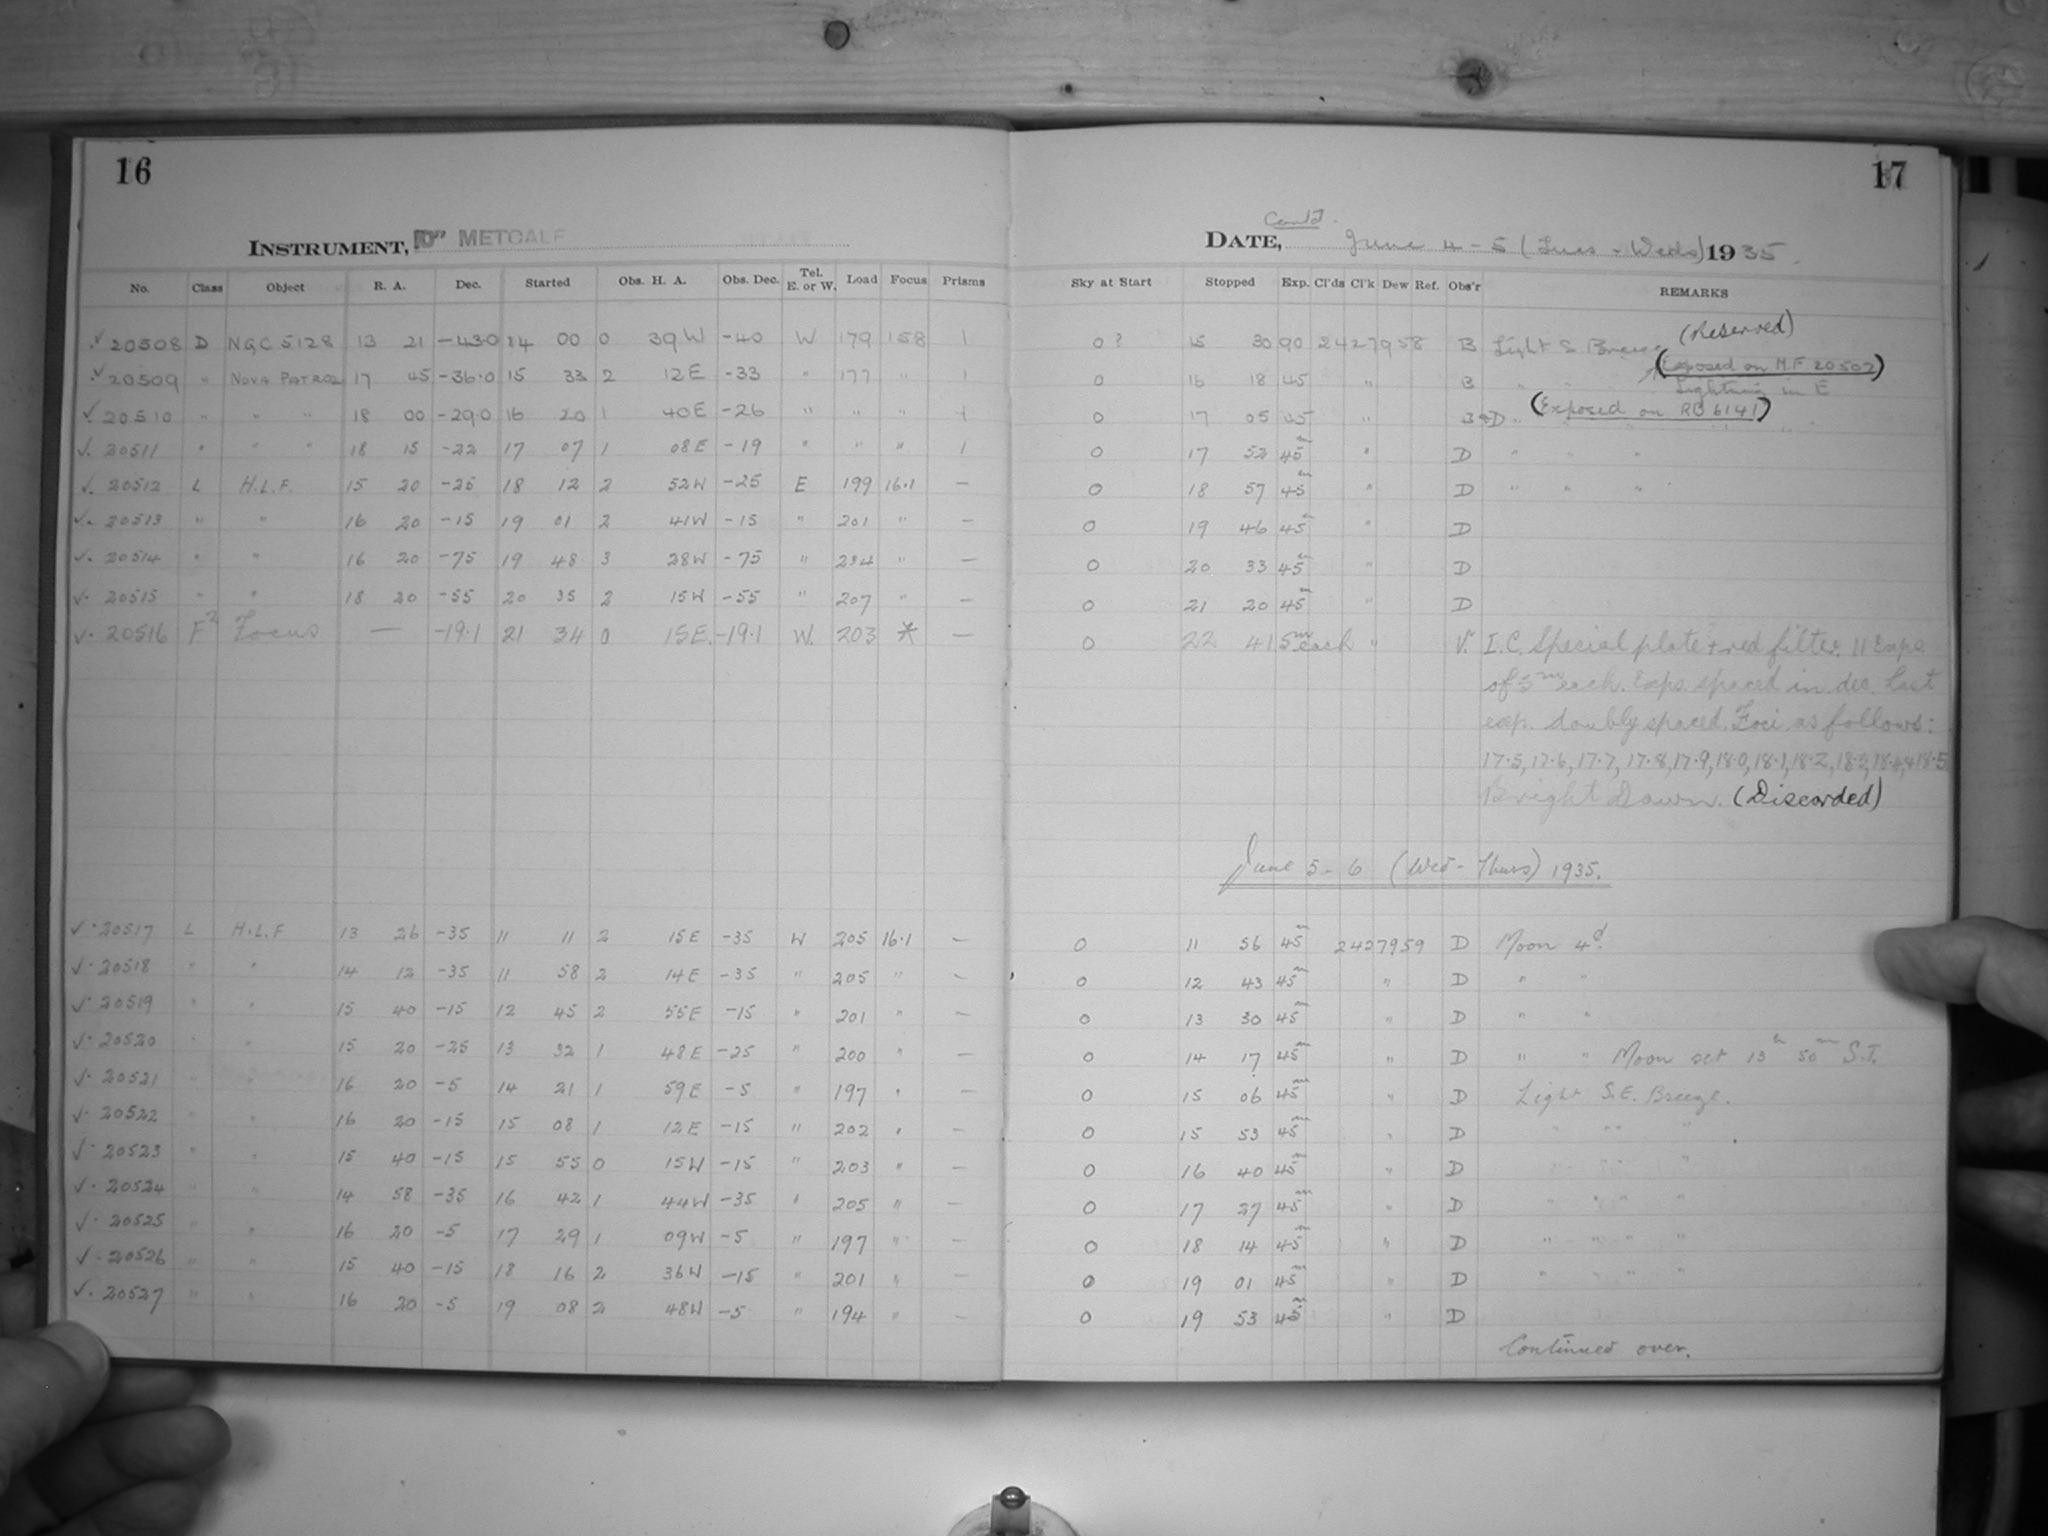 16
INSTRUMENT, 10" METCALF
No. Class Object R. A. Dec. Started Obs. H. A. Obs. Dec. Tel. E. or W. Load Focus Prisms
✓ 20508 D NGC 5128 13 21 -43.0 14 00 0 39W -40 W 179 158 1
✓ 20509 " NOVA PATROL 17 45 -36.0 15 33 2 12E -33 " 177 " 1
✓ 20510 " " " 18 00 -29.0 16 20 1 40E -26 " " " 1
✓. 20511 " " " 18 15 -22 17 07 1 08E -19 " " " 1
✓. 20512 L H.L.F. 15 20 -25 18 12 2 52W -25 E 199 16.1 —
✓. 20513 " " 16 20 -15 19 01 2 41W -15 " 201 " —
✓. 20514 " " 16 20 -75 19 48 3 28W -75 " 234 " —
✓. 20515 " " 18 20 -55 20 35 2 15W -55 " 207 " —
✓. 20516 F2 Focus — -19.1 21 34 0 15E. -19.1 W. 203 * —
✓. 20517 L H.L.F 13 26 -35 11 11 2 15E -35 W 205 16.1 —
✓. 20518 " " 14 12 -35 11 58 2 14E -35 " 205 " —
✓. 20519 " " 15 40 -15 12 45 2 55E -15 " 201 " —
✓. 20520 " " 15 20 -25 13 32 1 48E -25 " 200 " —
✓. 20521 " 16 20 -5 14 21 1 59E -5 " 197 " —
✓. 20522 " " 16 20 -15 15 08 1 12E -15 " 202 " —
✓. 20523 " " 15 40 -15 15 55 0 15W -15 " 203 " —
✓. 20524 " " 14 58 -35 16 42 1 44W -35 " 205 " —
✓. 20525 " " 16 20 -5 17 29 1 09W -5 " 197 " —
✓. 20526 " " 15 40 -15 18 16 2 36W -15 " 201 " —
✓. 20527 " " 16 20 -5 19 08 2 48W -5 " 194 " —
17
Cont'd.
DATE, June 4 - 5 (Tues - Weds) 1935.
Sky at Start Stopped Exp. Cl'ds Cl'k Dew Ref. Obs'r REMARKS
0? 15 30 90 2427958 B Light S. Breeze (Reserved)
(Exposed on M.F. 20502)
0 16 18 45 " B " " " Lightning in E
0 17 05 45 " B+D " (Exposed on RB 6141)
0 17 52 45m " D " " "
0 18 57 45m " D " " "
0 19 46 45m " D
0 20 33 45m " D
0 21 20 45m " D
0 22 41 5m each " V. I.C. Special plate + red filter. 11 Exps.
of 5m each. Exps. spaced in dec. Last
exp. doubly spaced. Foci as follows:
17.5, 17.6, 17.7, 17.8, 17.9, 18.0, 18.1, 18.2, 18.3, 18.4, + 18.5
Bright Dawn. (Discarded)
June 5 - 6 (Wed - Thurs) 1935.
0 11 56 45m 2427959 D Moon 4d.
0 12 43 45m " D " "
0 13 30 45m " D " "
0 14 17 45m " D " " Moon set 13h 50m S.T.
0 15 06 45m " D Light S.E. Breeze.
0 15 53 45m " D " " "
0 16 40 45m " D " " "
0 17 27 45m " D " " " "
0 18 14 45m " D " " " "
0 19 01 45m " D " " " "
0 19 53 45m " D
Continued over.